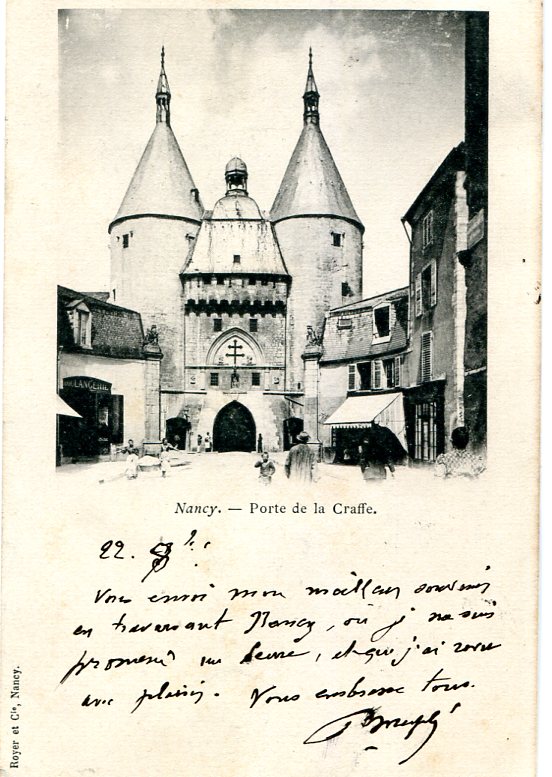 BOULANGERIE
Nancy. — Porte de la Craffe.
22. 8bre
Vous envoi mon meilleur souvenir
en traversant Nancy, où je me suis
promené une heure, et que j'ai revu
avec plaisir. Vous embrasse tous.
Royer et Cie, Nancy.